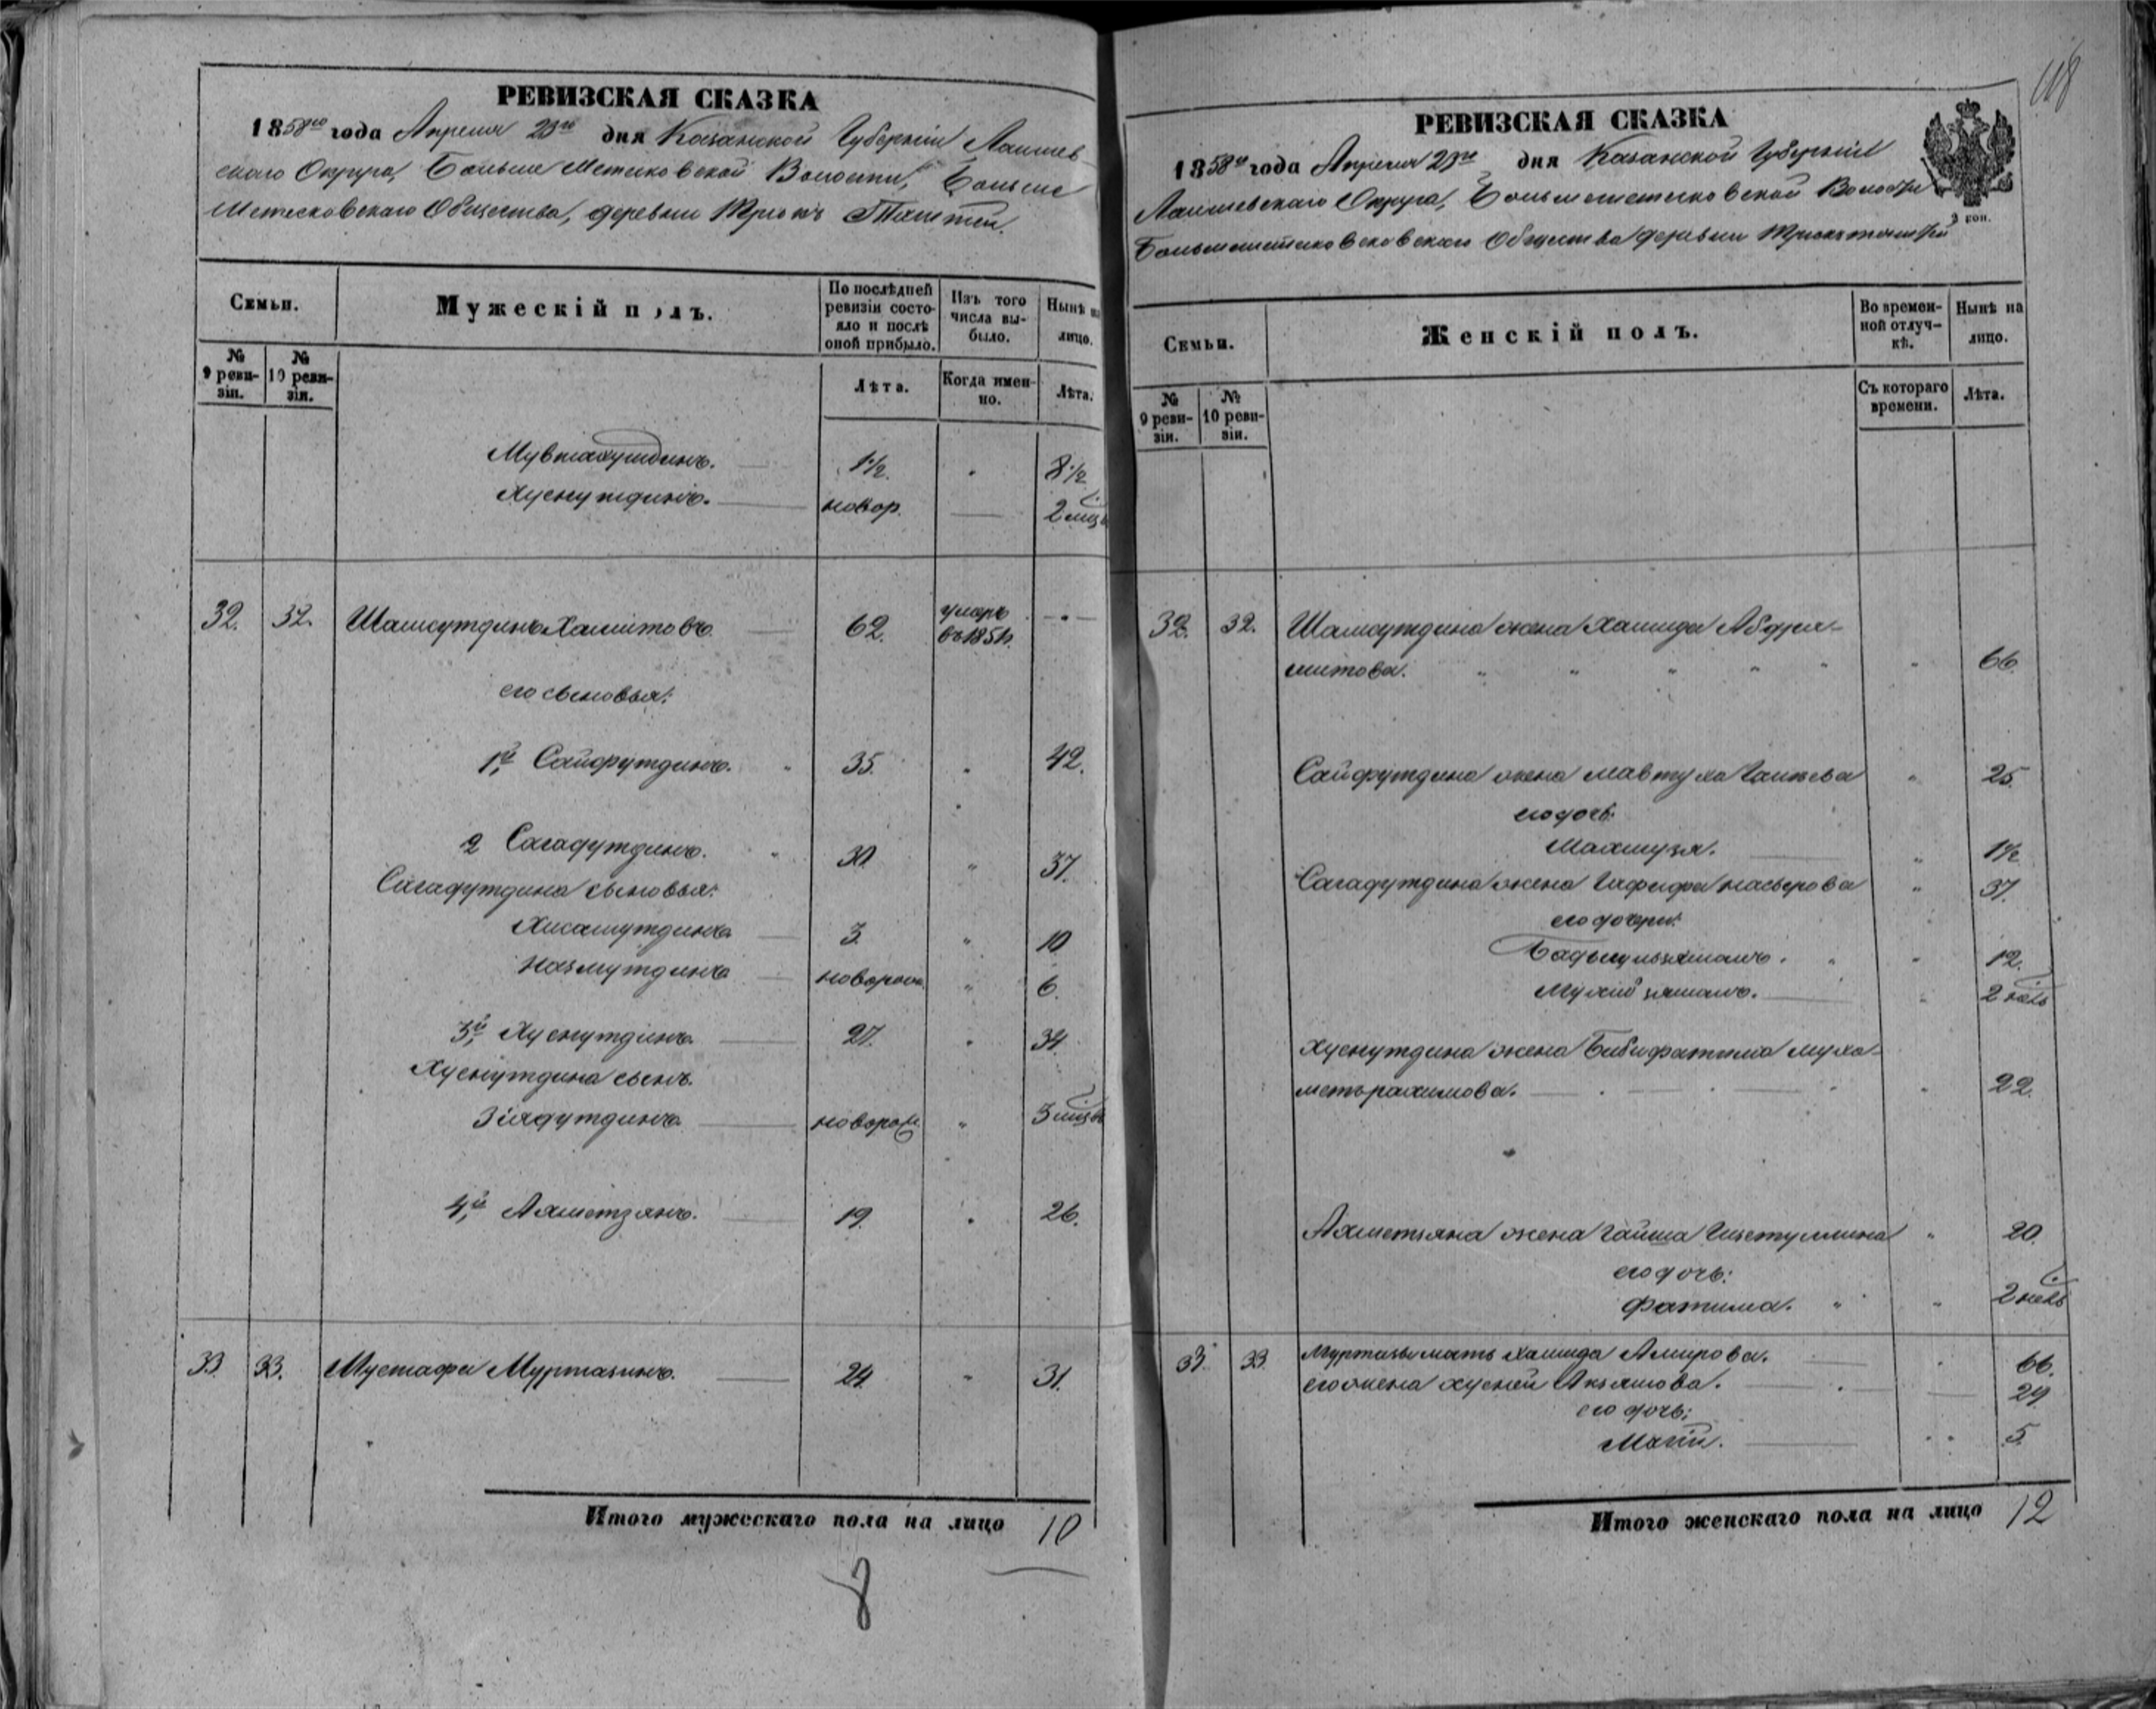 РЕВИЗСКАЯ СКАЗКА
1858го года Апреля 23го дня Казанской Губерніи Лаишев-
скаго Округа, Больше Метесковской Волости, Больше
Метесковскаго Общества, деревни Трюкъ Тямтей.
Семьи.
Мужескій полъ.
По послѣдней ревизіи состояло и послѣ оной прибыло.
Изъ того числа выбыло.
Нынѣ на лицо.
№ 9 ревизіи.
№ 10 ревизіи.
Лѣта.
Когда именно.
Лѣта.
1½. 8½
Хуснутдинъ. новор. 2 мѣс
32. 32. Шамсутдинъ Хамитовъ 62. умеръ въ 1851.
его сыновья:
1й Сайфутдинъ. 35. 42.
2 Сагадутдинъ. 30. 37.
Сагадутдина сыновья:
Хисамутдинъ 3. 10
Назмутдинъ новорож. 6.
3й Хуснутдинъ 27. 34.
Хуснутдина сынъ.
Зіядутдинъ новорож. 3 мѣс
4й Ахметзянъ. 19. 26.
33. 33. Мустафа Муртазинъ. 24. 31.
Итого мужескаго пола на лицо 10
8
118
РЕВИЗСКАЯ СКАЗКА
1858го года Апреля 23го дня Казанской Губерніи
Лаишевскаго Округа, Большеметесковской Волости
Общества деревни
3 коп.
Семьи.
Женскій полъ.
Во временной отлучкѣ.
Нынѣ на лицо.
№ 9 ревизіи.
№ 10 ревизіи.
Съ котораго времени.
Лѣта.
32. 32. Шамсутдина жена Хамида Абдря-
митова. 66.
Сайфутдина жена Мавтуха 25.
его дочь:
1½
Сагадутдина жена Гафифа Насырова 37.
его дочери:
Бадыгульзяманъ. 12.
2 нед
Хуснутдина жена Бибифатима Муха-
метърахимова. 22.
Ахметзяна жена Гайша 20.
его дочь:
Фатима. 2 нед
33. 33. Муртазы мать Хамида Амирова. 66.
его жена 29
его дочь:
5.
Итого женскаго пола на лицо 12